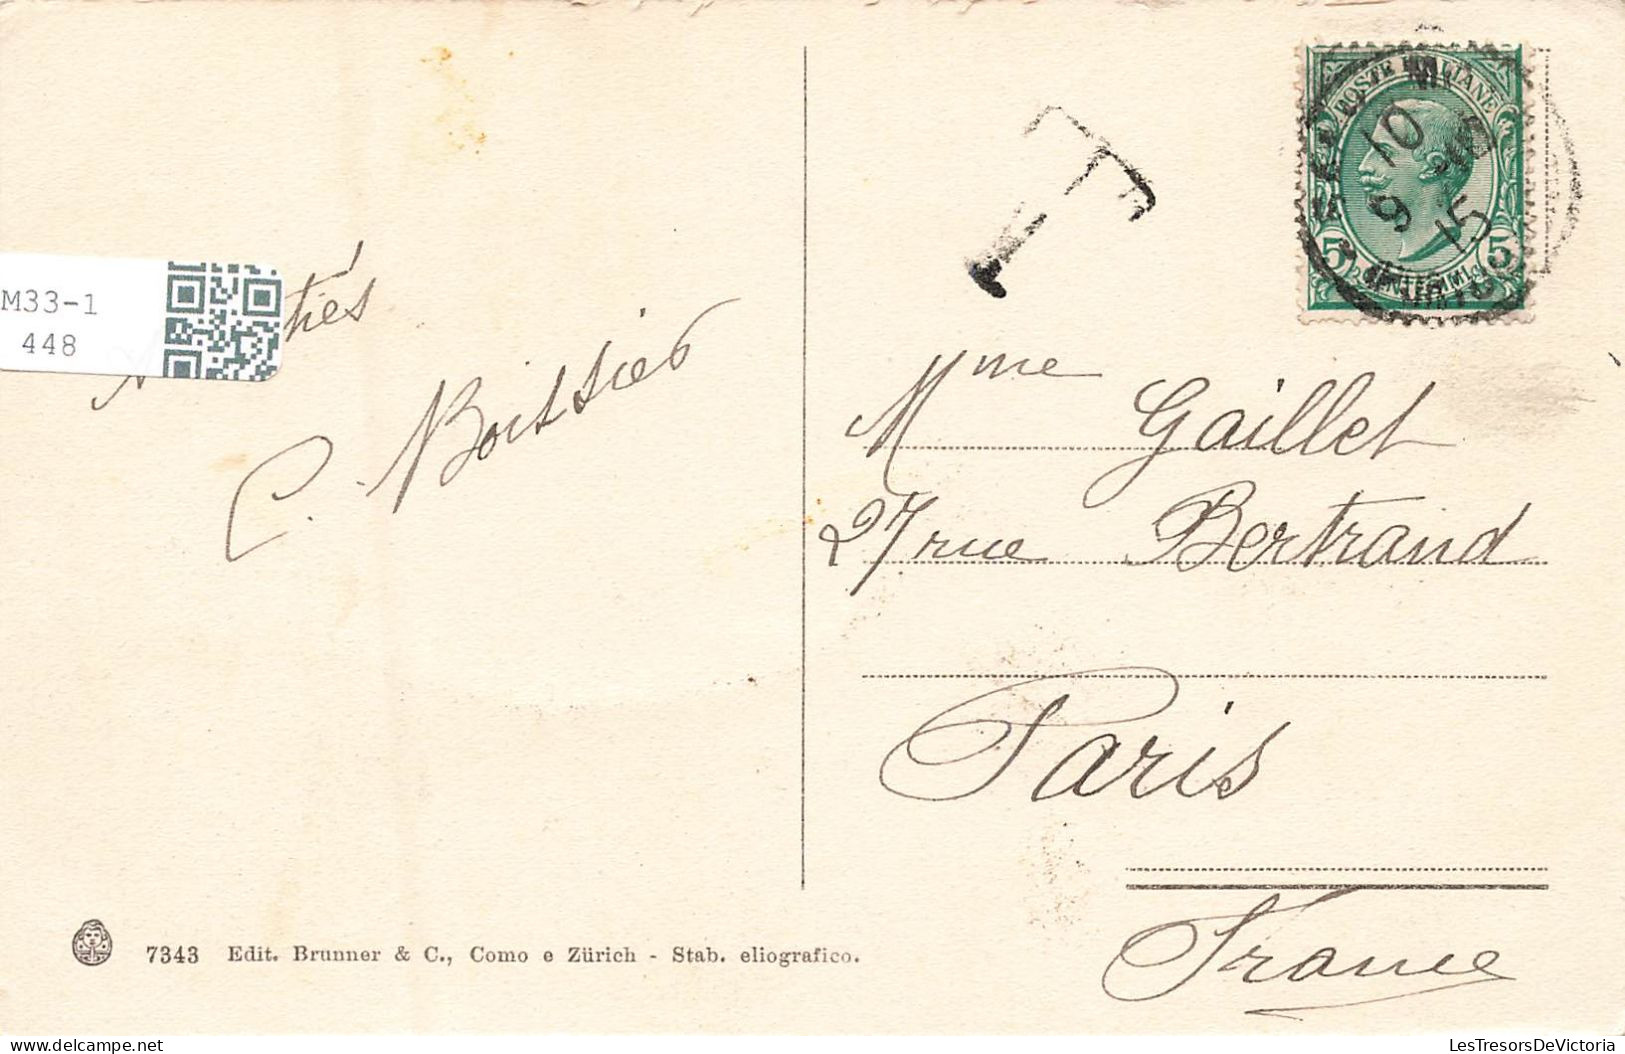 POSTE ITALIANE
10
9 15
5 CENTESIMI 5
T
M33-1
448
tiés
C. Boissier
Mme Gaillet
27 rue Bertrand
Paris
France
7343 Edit. Brunner & C., Como e Zürich - Stab. eliografico.
LesTresorsDeVictoria.com